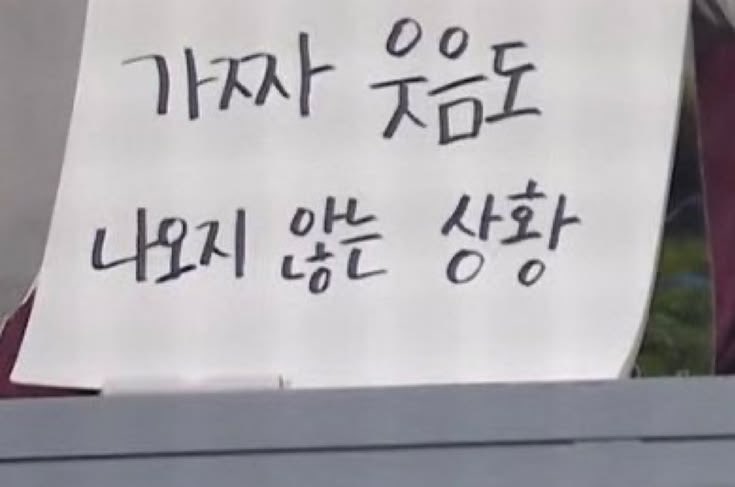 가짜 웃음도
나오지 않는 상황